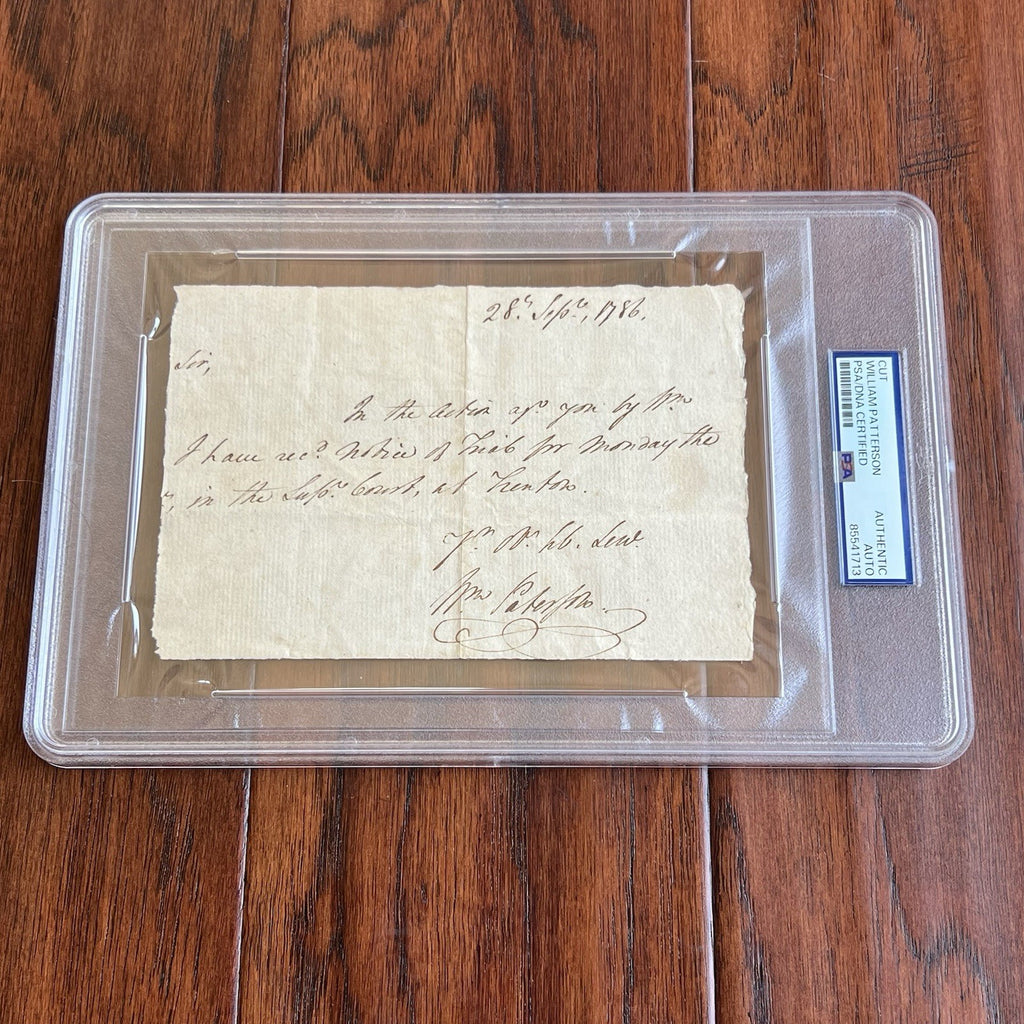 28.th Sepr., 1786.
Sir,
In the Action agt. you by Wm
I have recd. Notice of Trial for Monday the
, in the Supr. Court, at Trenton.
Yr. Ob. hb. Serv.
Wm Paterson.
CUT
WILLIAM PATTERSON
PSA/DNA CERTIFIED
PSA
AUTHENTIC
AUTO
85541713